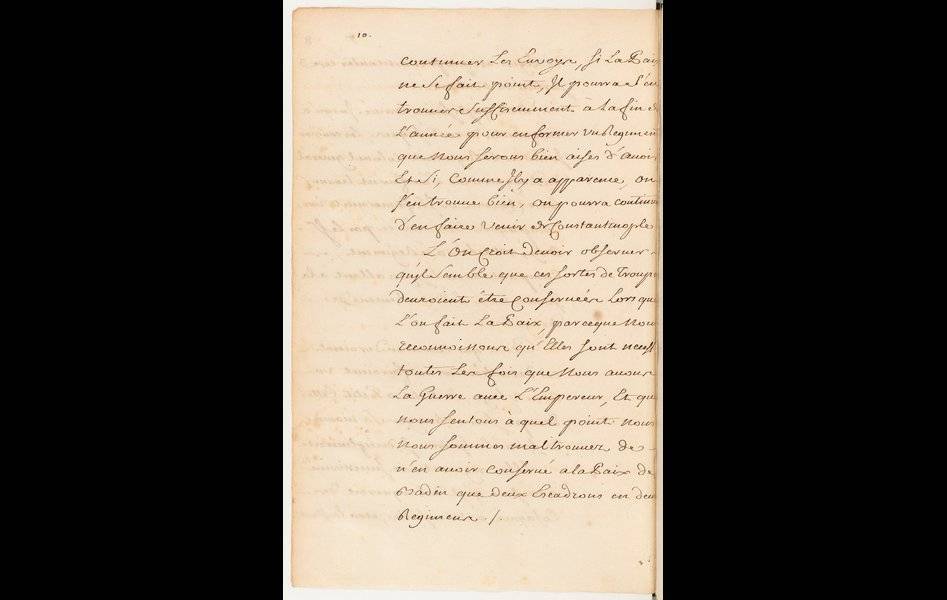 10.
continuer Les Envoys, Si La Paix
ne se fait point, Il pourra s'en
trouuer suffisemment a La fin de
L'année pour en former vn Regiment
que Nous serons bien aises d'auoir,
Et Si, Comme Il y a apparence, on
s'en trouue bien, on pourra continuer
d'en faire venir de Constantinople
L'On Croit deuoir obseruer
qu'jl Semble que ces sortes de Troupes
deuroient être Conseruées Lors que
L'on fait La Paix, parceque Nous
reconnoissons qu'Elles sont necess
toutes Les fois que Nous auons
La Guerre auec L'Empereur, Et que
nous sentons à quel point nous
Nous sommes mal trouuez de
n'en auoir Conserué a la Paix de
Radin que deux Escadrons en deux
Regimens /.